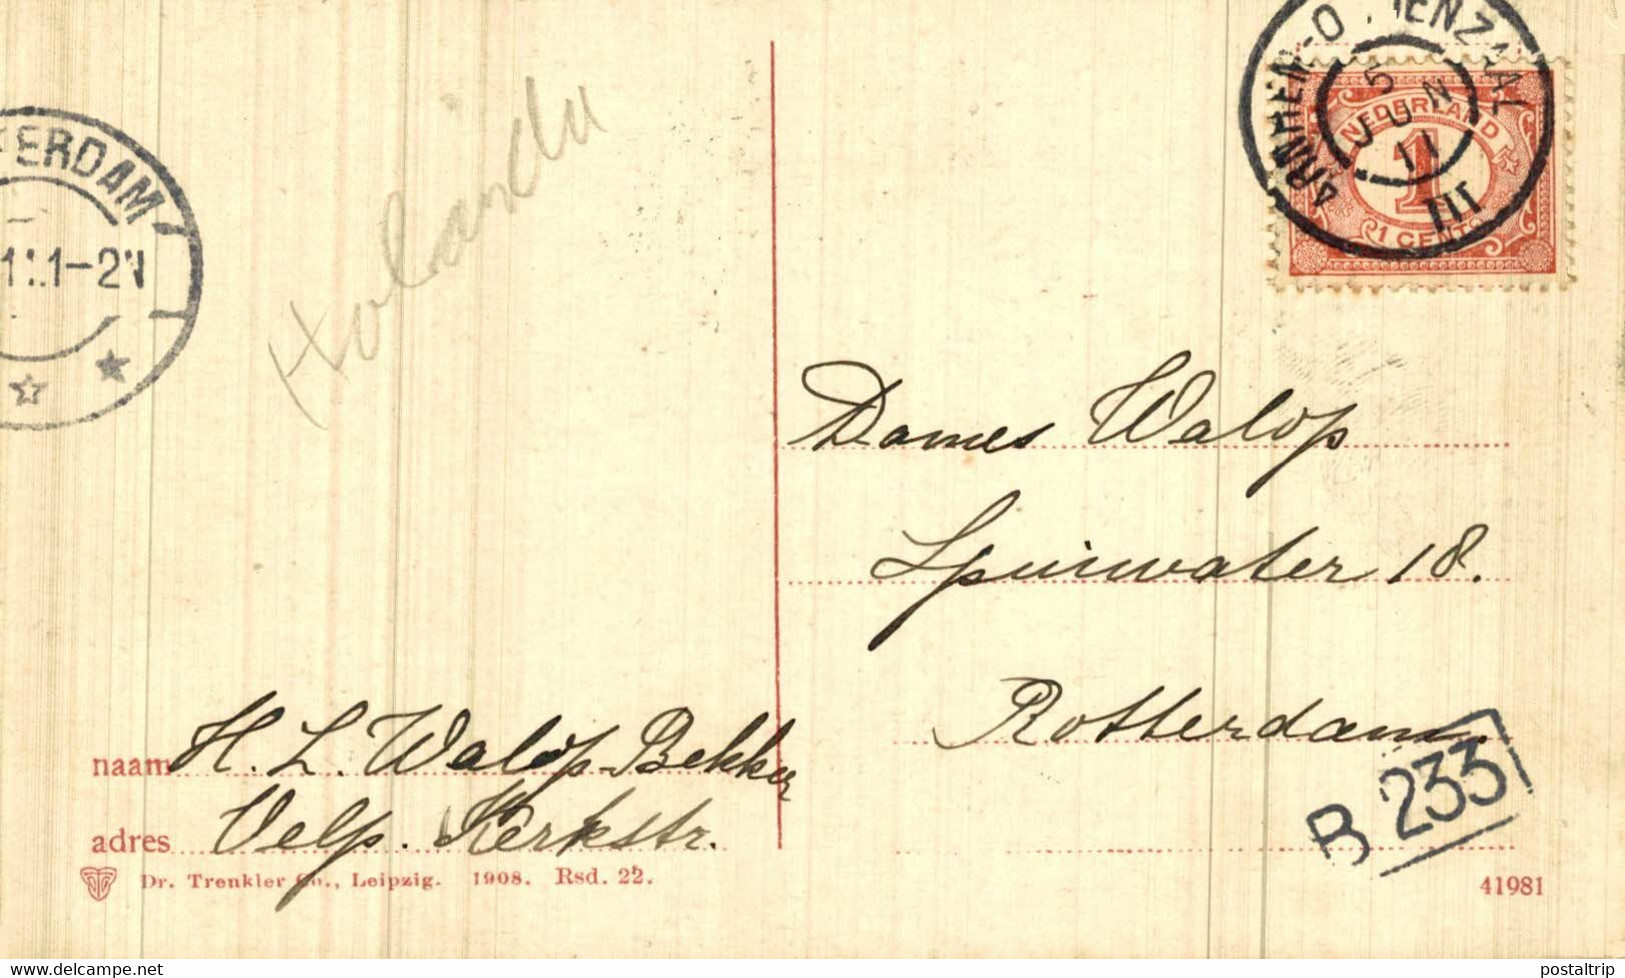 TERDAM
11.1-2N
Holanda
ARNHEM-O ENZAAL
5
JUN
11
III
NEDERLAND
1
1 CENT
Dames Walop
Spuiwater 18.
Rotterdam.
B 233
naam H. L. Walop-Bekker
adres Velp. Kerkstr.
Dr. Trenkler Co., Leipzig. 1908. Rsd. 22.
41981
postaltrip.delcampe.net
postaltrip